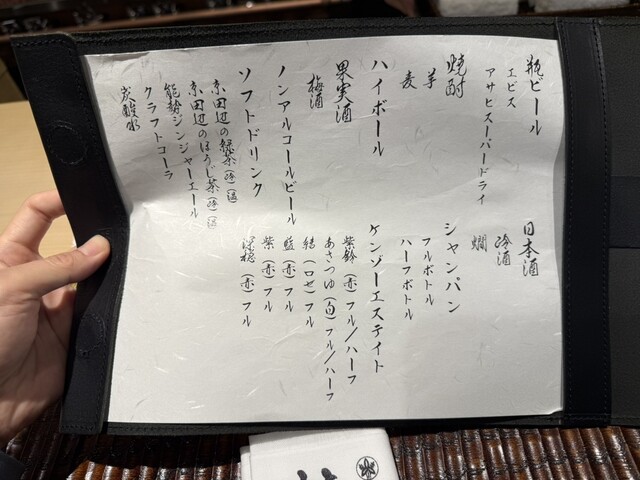 瓶ビール
エビス
アサヒスーパードライ
焼酎
芋
麦
ハイボール
果実酒
梅酒
ノンアルコールビール
ソフトドリンク
京田辺の緑茶(冷)(温)
京田辺のほうじ茶(冷)(温)
能勢ジンジャーエール
クラフトコーラ
炭酸水
日本酒
冷酒
燗
シャンパン
フルボトル
ハーフボトル
ケンゾーエステイト
紫鈴(赤)フル/ハーフ
あさつゆ(白)フル/ハーフ
結(ロゼ)フル
藍(赤)フル
紫(赤)フル
深穏(赤)フル